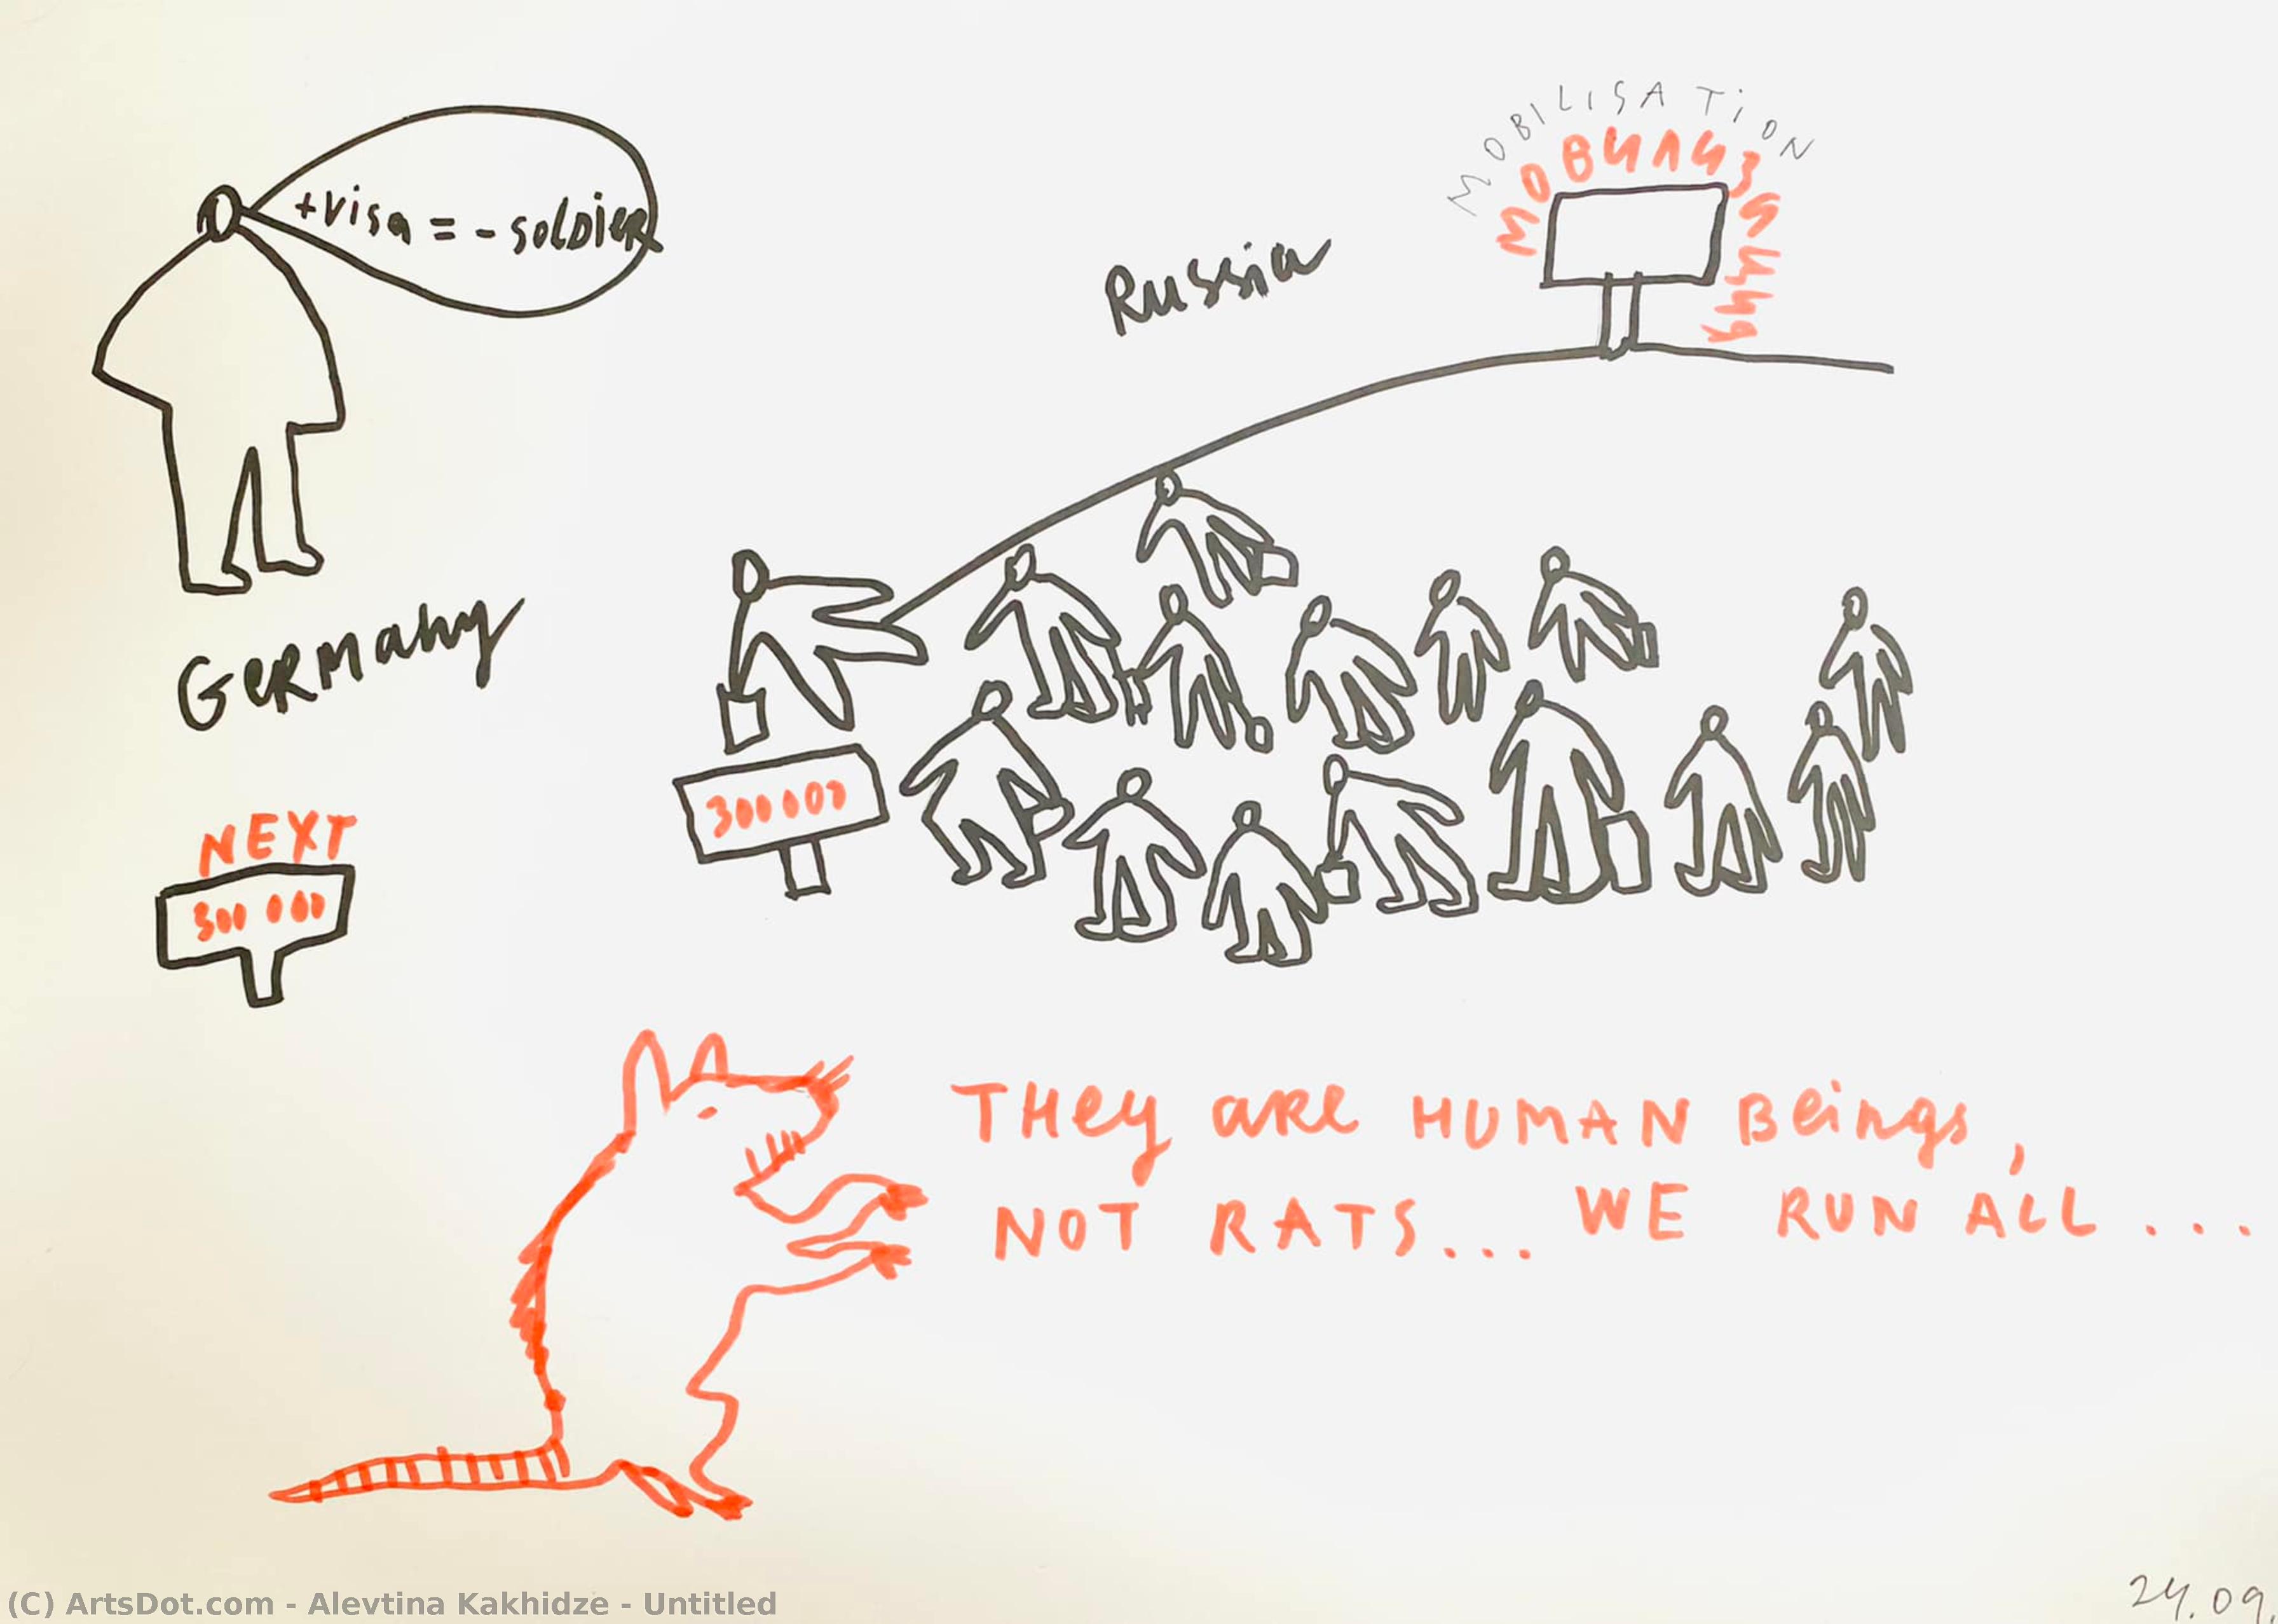 +visa = - soldier
MOBILISATION
мобилизация
Russia
Germany
300 000
NEXT
300 000
THEY are HUMAN Beings,
NOT RATS... WE RUN ALL ...
24.09.
(C) ArtsDot.com - Alevtina Kakhidze - Untitled